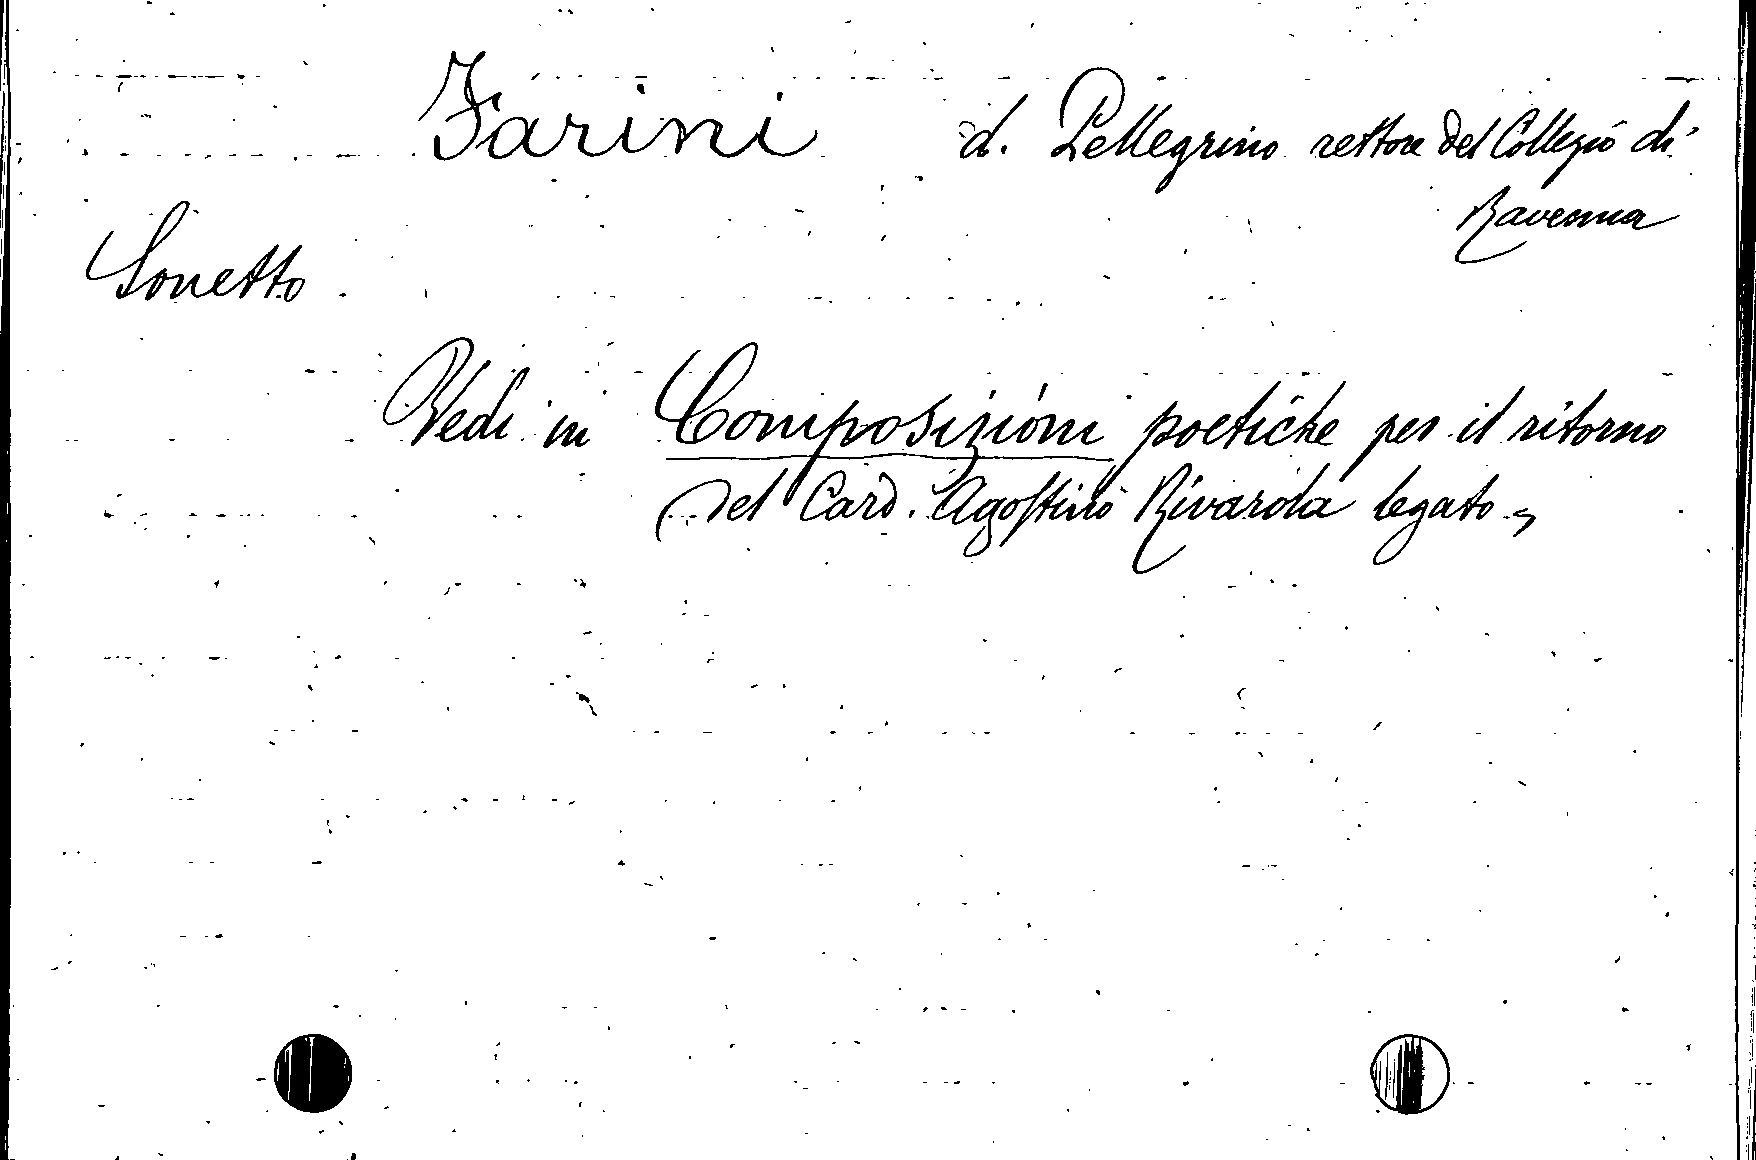 Farini d. Pellegrino rettore del Collegio di
Ravenna
Sonetto
Vedi in Composizioni poetiche per il ritorno
del Card. Agostino Rivarola legato =